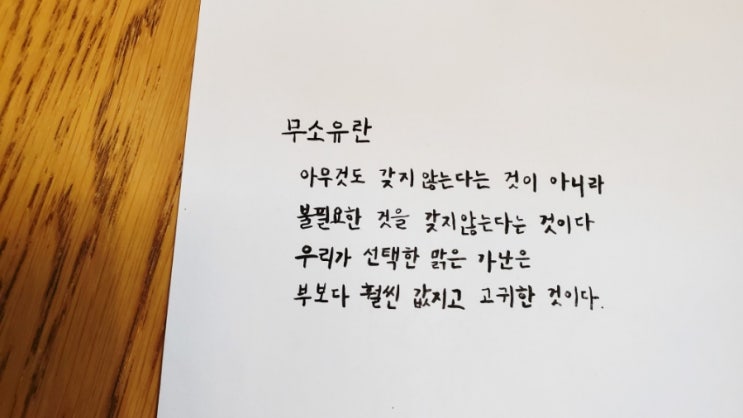 무소유란
아무것도 갖지 않는다는 것이 아니라
불필요한 것을 갖지않는다는 것이다
우리가 선택한 맑은 가난은
부보다 훨씬 값지고 고귀한 것이다.